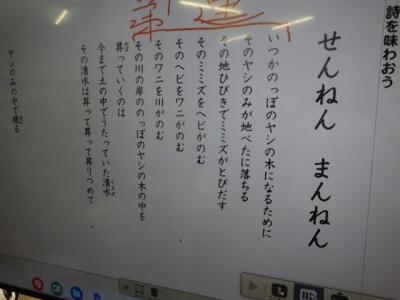 詩を味わおう
せんねん まんねん
いつかのっぽのヤシの木になるために
そのヤシのみが地べたに落ちる
その地ひびきでミミズがとびだす
そのミミズをヘビがのむ
そのヘビをワニがのむ
そのワニを川がのむ
その川の岸ののっぽのヤシの木の中を
昇っていくのは
今まで土の中でうたっていた清水
その清水は昇って昇って昇りつめて
ヤシのみの中で眠る